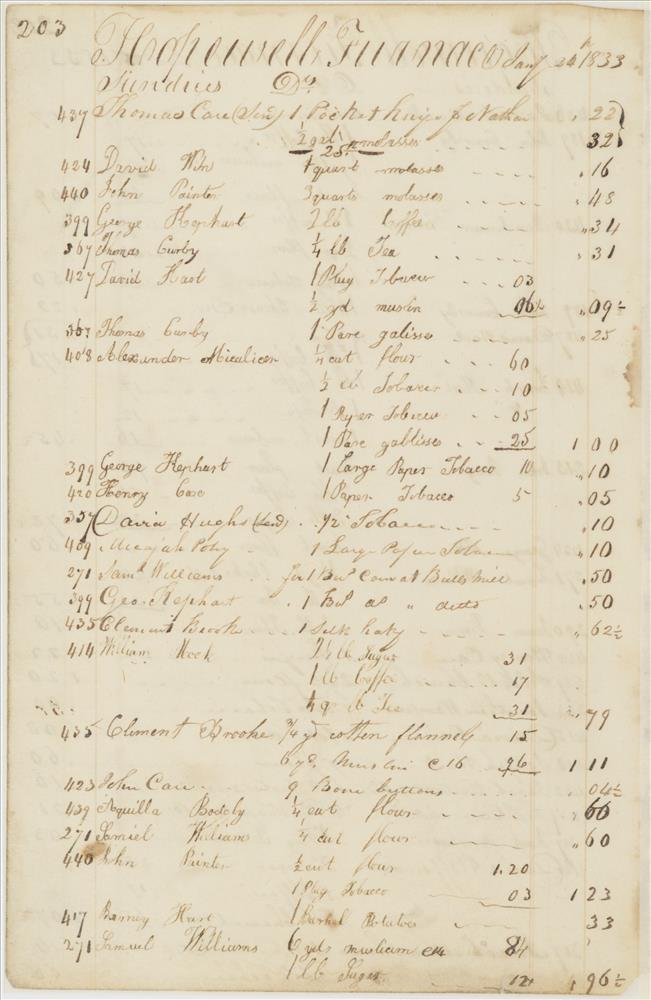 203
Hopewell Furnace Jany 24th 1833
Sundries Drs
437 Thomas Care (Send) 1 Pocket knife f Nathan ,22
½ gal molasses 32
25
424 David Wm 1 quart molasses ,16
440 John Painter 3 quarts molasses ,48
399 George Hephart 2 lb Coffee ,34
367 Thomas Curby ¼ lb Tea ,31
427 David Hart 1 Plug Tobacco 03
½ yd muslin 06½ ,09½
367 Thomas Curby 1 Pare galisses ,25
408 Alexander ¼ cut flour 60
½ lb Tobacco 10
1 Paper Tobacco 05
1 Pare gallisses 25 1 00
399 George Hephart 1 Large Paper Tobacco 10 ,10
420 Henry Care 1 Paper Tobacco 5 ,05
357 David Hughs (Send) ½ Tobacco ,10
409 Micajah Posey 1 Large Paper Tobacco ,10
271 Saml Williams for 1 Bul Corn at Bulls Mill ,50
399 Geo. Hephart 1 Bul do " ditto ,50
435 Clement Brooke 1 Silk hakf ,62½
414 William Hook 2½ lb Sugar 31
1 lb Coffee 17
¼ lb Tea 31 ,79
435 Clement Brooke ¾ yd cotten flannel 15
6 yds Muslin @16 96 1 11
423 John Care 9 Bone buttons 04½
439 Aquilla ¼ cut flour 60
271 Samuel Williams ¼ cut flour ,60
440 John Painter ½ cut flour 1.20
1 Plug Tobacco 03 1 23
417 Barney Hart 1 Bushel Potatoes 33
271 Samuel Williams 6 yds musliam @14 84
1 lb Sugar 12½ ,96½